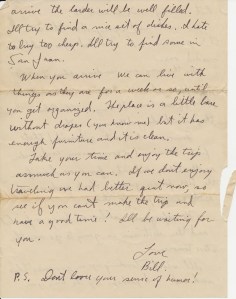 arrive the larder will be well filled.
I'll try to find a nice set of dishes. I hate
to buy too cheap. I'll try to find some in
San Juan.
When you arrive we can live with
things as they are for a week or so, until
you get organized. The place is a little bare
without drapes (you know me) but it has
enough furniture and it is clean.
Take your time and enjoy the trip
as much as you can. If we don't enjoy
traveling we had better quit now, so
see if you can't make the trip and
have a good time! I'll be waiting for
you.
Love
Bill.
P.S. Don't loose your sense of humor!